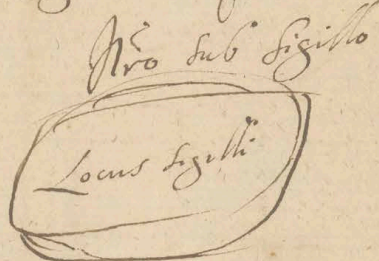 Nr̃o sub sigillo
Locus sigilli